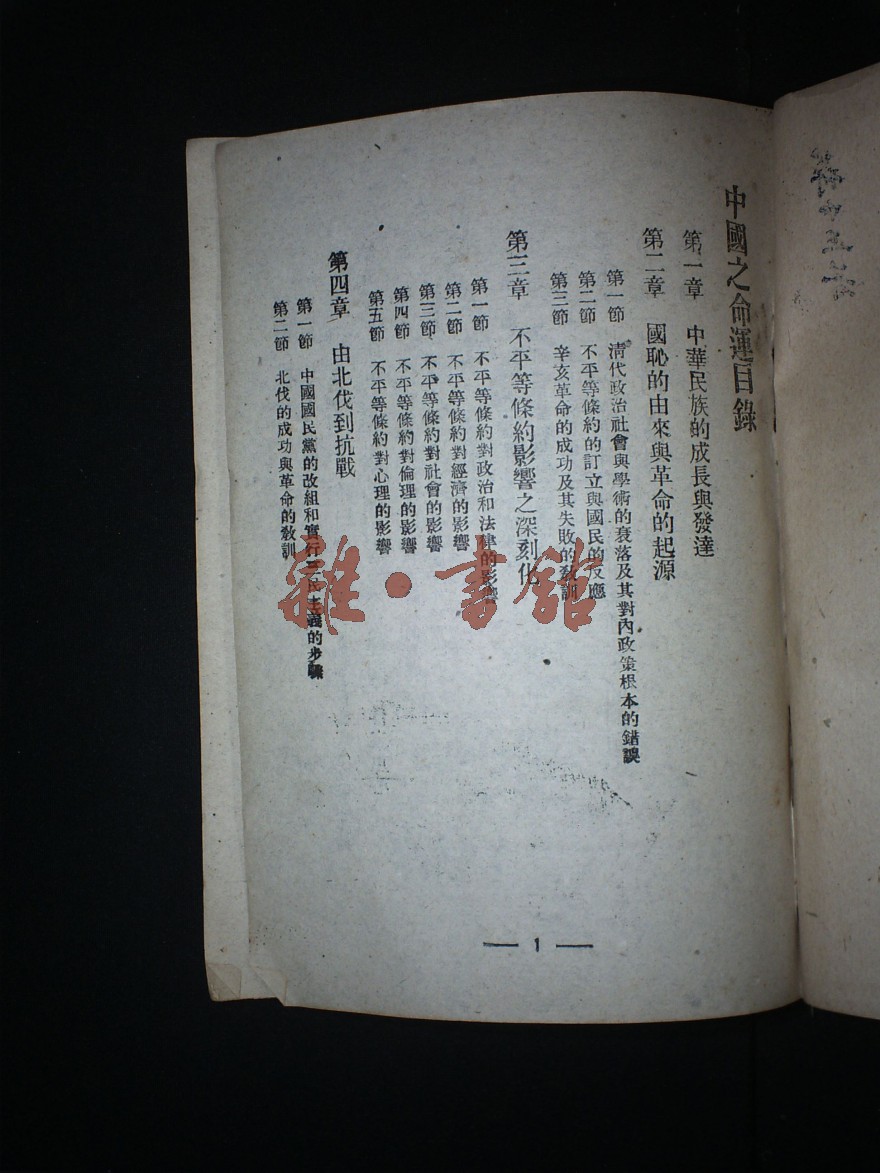 中國之命運目錄
第一章　中華民族的成長與發達
第二章　國恥的由來與革命的起源
第一節　清代政治社會與學術的衰落及其對內政策根本的錯誤
第二節　不平等條約的訂立與國民的反應
第三節　辛亥革命的成功及其失敗的教訓
第三章　不平等條約影響之深刻化
第一節　不平等條約對政治和法律的影響
第二節　不平等條約對經濟的影響
第三節　不平等條約對社會的影響
第四節　不平等條約對倫理的影響
第五節　不平等條約對心理的影響
第四章　由北伐到抗戰
第一節　中國國民黨的改組和實行三民主義的步驟
第二節　北伐的成功與革命的教訓
— 1 —
雜·書館